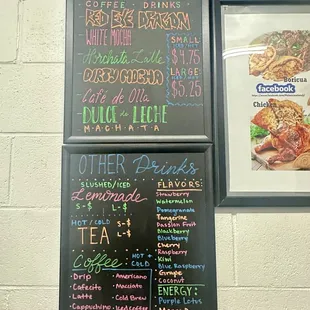 COFFEE DRINKS
RED EYE DRAGON
WHITE MOCHA
Horchata Latte
DIRTY MOCHA
Café de Olla
DULCE de LECHE
MACHATA
SMALL
$4.75
LARGE
$5.25
OTHER Drinks
SLUSHED/ICED
Lemonade
S-$ L-$
HOT / COLD
TEA
S-$
L-$
Coffee
HOT +
COLD
Drip
Cafecito
Latte
Cappuchino
Americano
Macciato
Cold Brew
Iced Coffee
FLAVORS:
Strawberry
Watermelon
Pomegranate
Tangerine
Passion Fruit
Blackberry
Blueberry
Cherry
Raspberry
Kiwi
Blue Raspberry
Grape
Coconut
ENERGY:
Purple Lotus
Boricua
facebook
Chicken